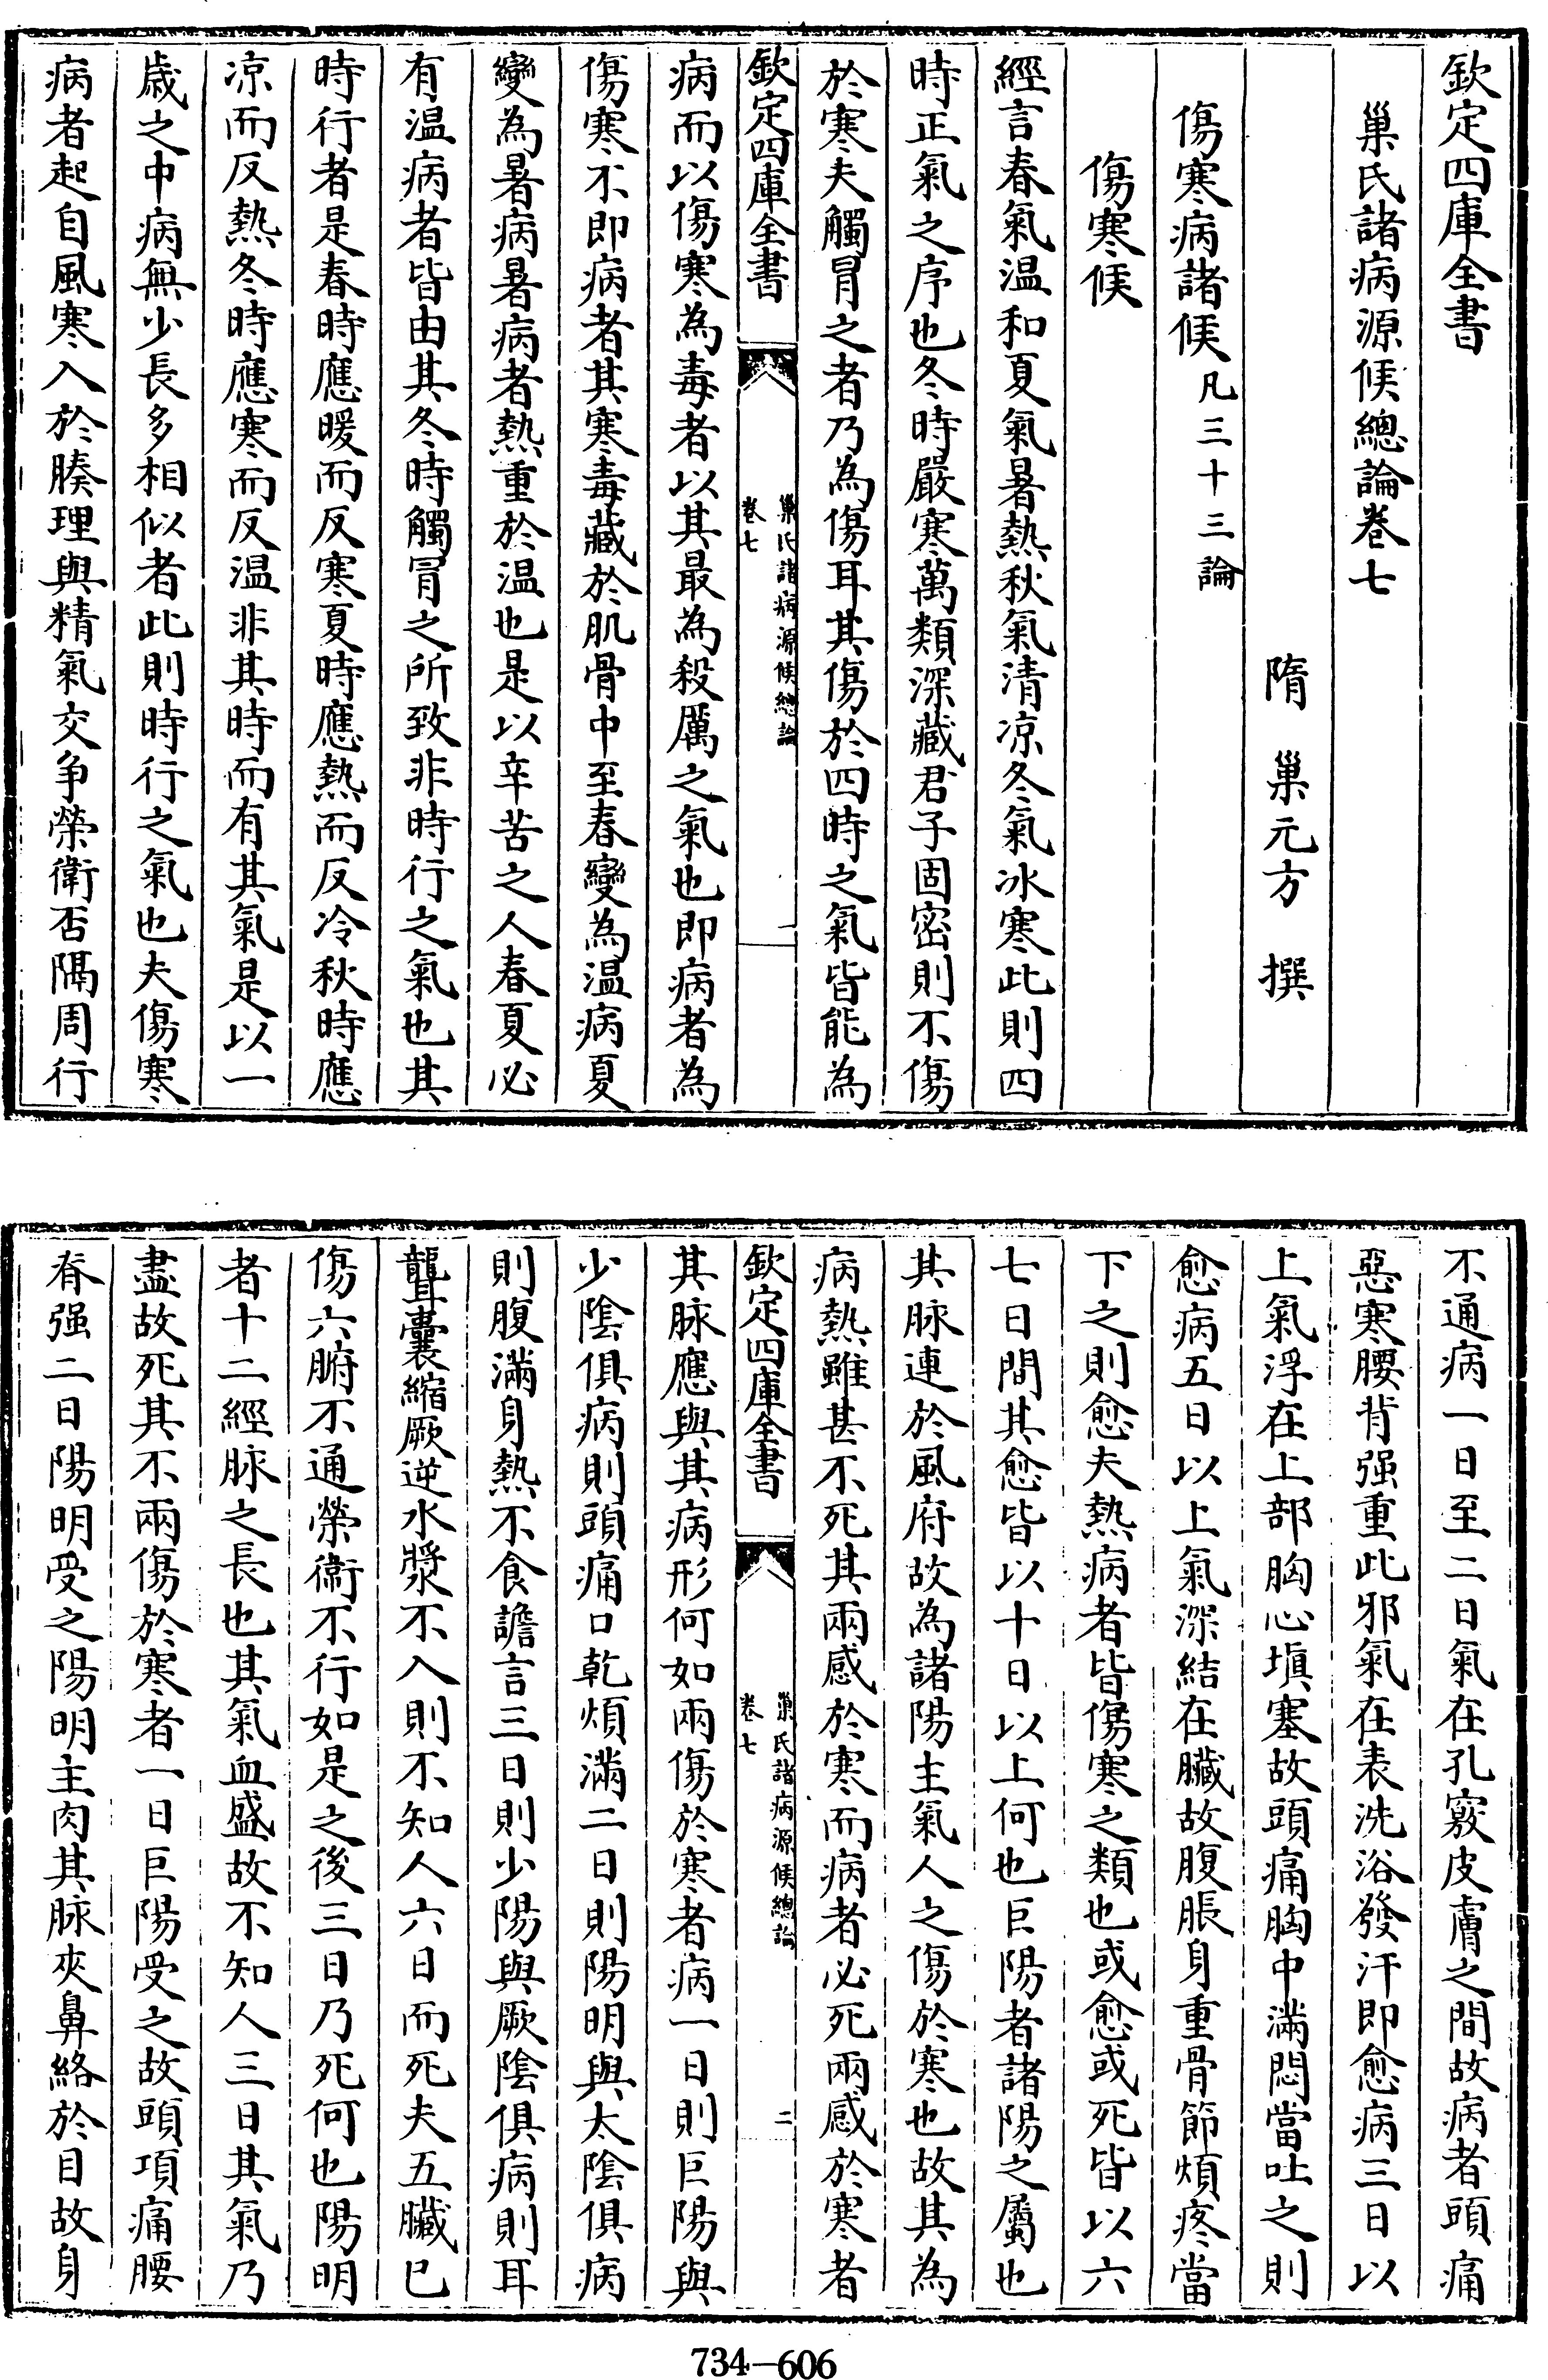 欽定四庫全書
巢氏諸病源候總論卷七
隋　巢元方　撰
傷寒病諸候凡三十三論
傷寒候
經言春氣温和夏氣暑熱秋氣清凉冬氣冰寒此則四
時正氣之序也冬時嚴寒萬類深藏君子固密則不傷
於寒夫觸冒之者乃為傷耳其傷於四時之氣皆能為
欽定四庫全書
巢氏諸病源候總論
卷七
一
病而以傷寒為毒者以其最為殺厲之氣也即病者為
傷寒不即病者其寒毒藏於肌骨中至春變為温病夏
變為暑病暑病者熱重於温也是以辛苦之人春夏必
有温病者皆由其冬時觸冒之所致非時行之氣也其
時行者是春時應暖而反寒夏時應熱而反冷秋時應
凉而反熱冬時應寒而反温非其時而有其氣是以一
歲之中病無少長多相似者此則時行之氣也夫傷寒
病者起自風寒入於腠理與精氣交争榮衛否隔周行
不通病一日至二日氣在孔竅皮膚之間故病者頭痛
惡寒腰背强重此邪氣在表洗浴發汗即愈病三日以
上氣浮在上部胸心塡塞故頭痛胸中滿悶當吐之則
愈病五日以上氣深結在臟故腹脹身重骨節煩疼當
下之則愈夫熱病者皆傷寒之類也或愈或死皆以六
七日間其愈皆以十日以上何也巨陽者諸陽之屬也
其脉連於風府故為諸陽主氣人之傷於寒也故其為
病熱雖甚不死其兩感於寒而病者必死兩感於寒者
欽定四庫全書
巢氏諸病源候總論
卷七
二
其脉應與其病形何如兩傷於寒者病一日則巨陽與
少陰俱病則頭痛口乾煩滿二日則陽明與太陰俱病
則腹滿身熱不食譫言三日則少陽與厥陰俱病則耳
聾囊縮厥逆水漿不入則不知人六日而死夫五臟已
傷六腑不通榮衛不行如是之後三日乃死何也陽明
者十二經脉之長也其氣血盛故不知人三日其氣乃
盡故死其不兩傷於寒者一日巨陽受之故頭項痛腰
脊强二日陽明受之陽明主肉其脉夾鼻絡於目故身
734—606